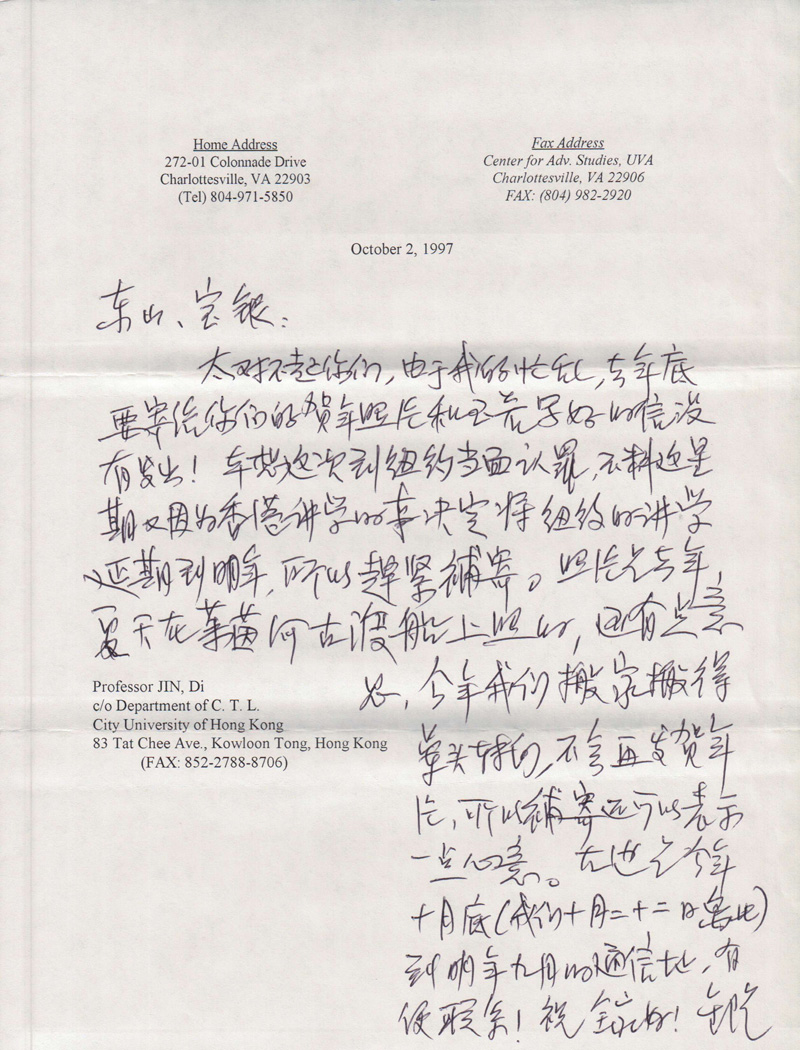 Home Address
272-01 Colonnade Drive
Charlottesville, VA 22903
(Tel) 804-971-5850
Fax Address
Center for Adv. Studies, UVA
Charlottesville, VA 22906
FAX: (804) 982-2920
October 2, 1997
东山、宝银：
太对不起你们，由于我的忙乱，去年底
要寄给你们的贺年照片和写好的信没
有发出！本想这次到纽约当面认罪，不料这星
期又因为香港讲学的事决定将纽约的讲学
延期到明年，所以趕紧補寄。照片是去年
夏天在莱茵河古渡船上照的，还有点意
思，今年我们搬家搬得
晕头转向，不会再发贺年
片，所以補寄还可以表示
一点心意。左边是今年
十月底（我们十月二十二日离此）
到明年九月的通信地址，有
便联系！祝全家好！
Professor JIN, Di
c/o Department of C. T. L.
City University of Hong Kong
83 Tat Chee Ave., Kowloon Tong, Hong Kong
(FAX: 852-2788-8706)